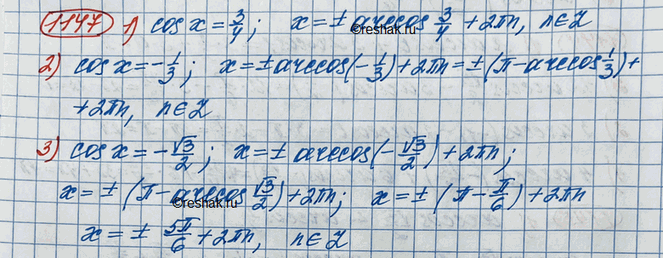 1147 1) cos x = 3/4; x = ± arccos 3/4 + 2πn, n∈Z
©reshak.ru
2) cos x = -1/3; x = ± arccos(-1/3) + 2πn = ± (π - arccos 1/3) +
+ 2πn, n∈Z
3) cos x = -√3/2; x = ± arccos(-√3/2) + 2πn;
x = ± (π - arccos √3/2) + 2πn; x = ± (π - π/6) + 2πn
©reshak.ru
x = ± 5π/6 + 2πn, n∈Z